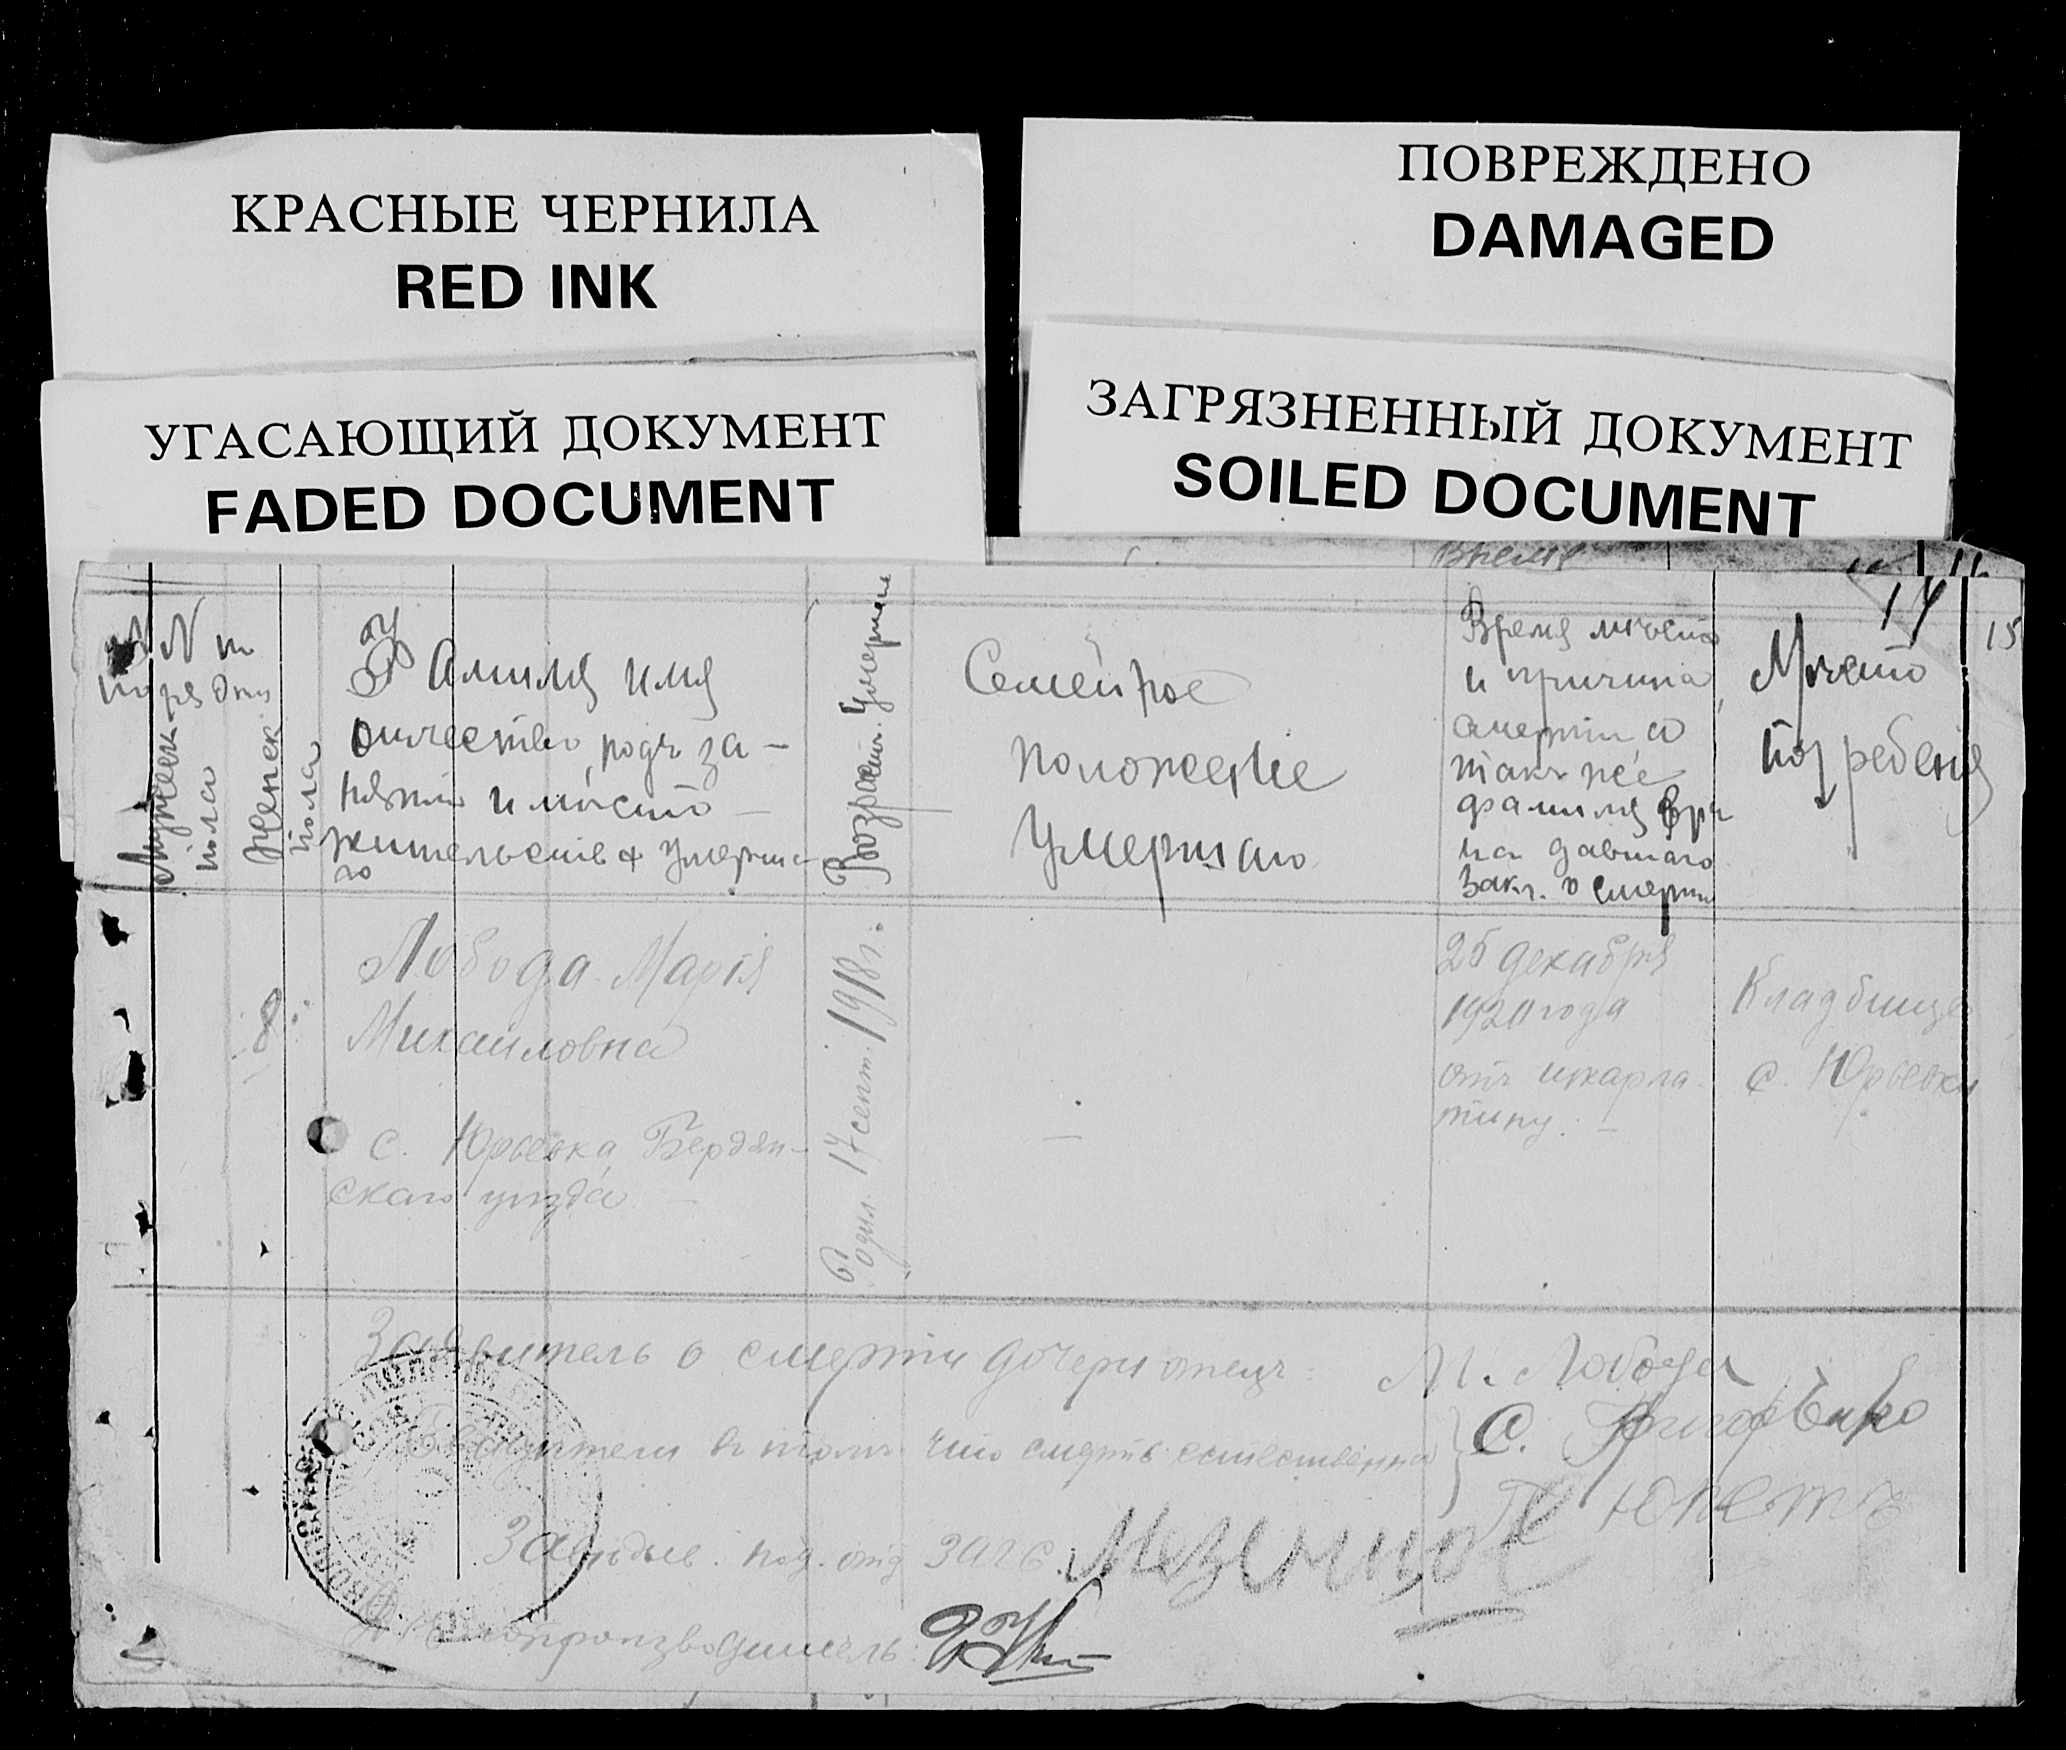 КРАСНЫЕ ЧЕРНИЛА
RED INK
ПОВРЕЖДЕНО
DAMAGED
УГАСАЮЩИЙ ДОКУМЕНТ
FADED DOCUMENT
ЗАГРЯЗНЕННЫЙ ДОКУМЕНТ
SOILED DOCUMENT
Время
14
15
Мужеск.
пола
Женск.
пола
Фамилия имя
отчество, родъ за-
нятія и мѣсто-
жительства умерша-
го
Возрастъ умерш
Семейное
положеніе
умершаго
Время мѣсто
и причина
смерти а
такъ же
фамилия врач
на давшаго
закл. о смерти
Мѣсто
погребенія
8
Лобода Марія
Михаиловна
с. Юрьевка Бердян-
скаго уѣзда
Родил. 17 сент. 1918 г.
—
25 декабря
1920 года
отъ шкарла-
тину. –
Кладбище
с. Юрьевки
Заявитель о смерти дочери отецъ: М. Лобода
Свидѣтели въ томъ что смерть естественна } С.
Завѣдыв. под. отд ЗАГС
Дѣлопроизводитель: